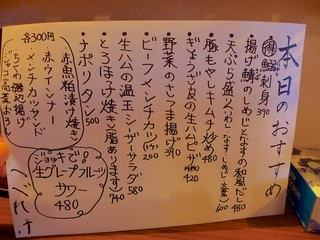 本日のおすすめ
特 鯵刺身 390
揚げ鯖のしめじとなすの和風だし 480
天ぷら盛(いわし なす しめじ 大葉) 600
豚もやしキムチ炒め 480
ぎょうざ皮の生ハムピザ 420
野菜のさつま揚げ 390
ビーフメンチカツ 200
生ハムの温玉シーザーサラダ 580
とろほっけ焼き(脂あります) 740
ナポリタン 500
各300円
赤魚粕漬け焼き
赤ウインナー
メンチカツサンド
ちくわ磯辺揚げ
ジャコ高菜おろし
ジョッキで!
生グレープフルーツ
サワー
480